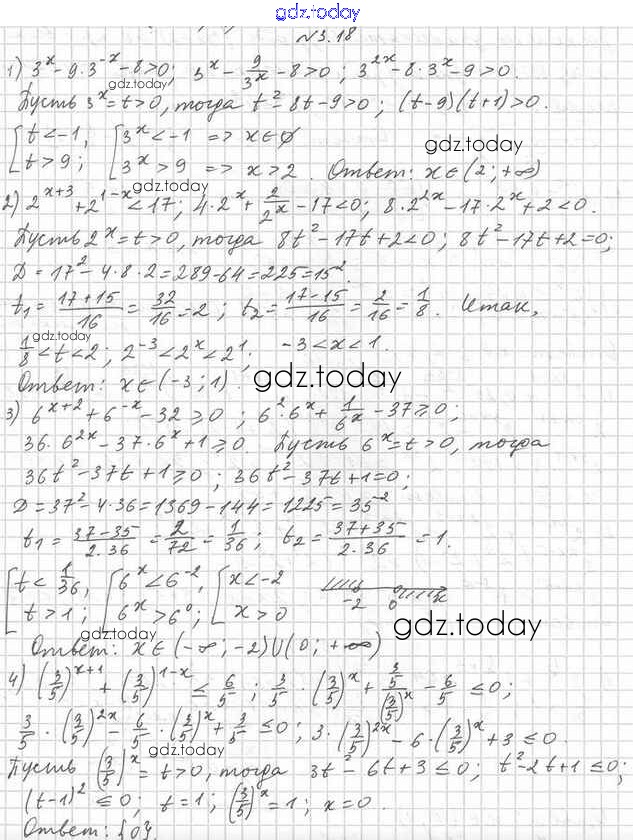 gdz.today
№3.18
1) 3^x - 9·3^{-x} - 8 > 0; 3^x - 9/3^x - 8 > 0; 3^{2x} - 8·3^x - 9 > 0.
gdz.today
Пусть 3^x = t > 0, тогда t² - 8t - 9 > 0; (t-9)(t+1) > 0.
[t < -1, [3^x < -1 => x ∈ ∅ gdz.today
[t > 9; [3^x > 9 => x > 2. Ответ: x ∈ (2; +∞)
gdz.today
2) 2^{x+3} + 2^{1-x} < 17; 4·2^x + 2/2^x - 17 < 0; 8·2^{2x} - 17·2^x + 2 < 0.
Пусть 2^x = t > 0, тогда 8t² - 17t + 2 < 0; 8t² - 17t + 2 = 0;
gdz.today
D = 17² - 4·8·2 = 289 - 64 = 225 = 15².
t₁ = (17+15)/16 = 32/16 = 2; t₂ = (17-15)/16 = 2/16 = 1/8. Итак,
gdz.today
1/8 < t < 2; 2^{-3} < 2^x < 2^1; -3 < x < 1.
Ответ: x ∈ (-3; 1). gdz.today
3) 6^{x+2} + 6^{-x} - 32 ⩾ 0; 6²·6^x + 1/6^x - 37 ⩾ 0;
36·6^{2x} - 37·6^x + 1 ⩾ 0. Пусть 6^x = t > 0, тогда
gdz.today
36t² - 37t + 1 ⩾ 0; 36t² - 37t + 1 = 0;
D = 37² - 4·36 = 1369 - 144 = 1225 = 35²
t₁ = (37-35)/(2·36) = 2/72 = 1/36; t₂ = (37+35)/(2·36) = 1.
gdz.today
[t < 1/36, [6^x < 6^{-2}, [x < -2
[t > 1; [6^x > 6^0; [x > 0 -2 0 x
gdz.today
Ответ: x ∈ (-∞; -2) ∪ (0; +∞)
4) (3/5)^{x+1} + (3/5)^{1-x} ≤ 6/5; 3/5·(3/5)^x + (3/5)/(3/5)^x - 6/5 ≤ 0;
3/5·(3/5)^{2x} - 6/5·(3/5)^x + 3/5 ≤ 0; 3·(3/5)^{2x} - 6·(3/5)^x + 3 ≤ 0.
gdz.today
Пусть (3/5)^x = t > 0, тогда 3t² - 6t + 3 ≤ 0; t² - 2t + 1 ≤ 0;
(t-1)² ≤ 0; t = 1; (3/5)^x = 1; x = 0.
Ответ: {0}.